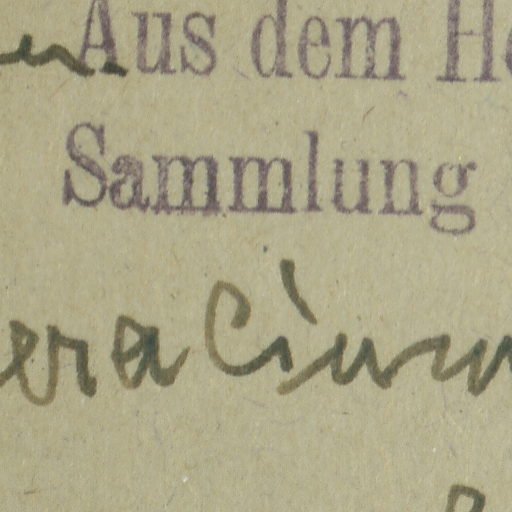 Aus dem He
Sammlung
eracium